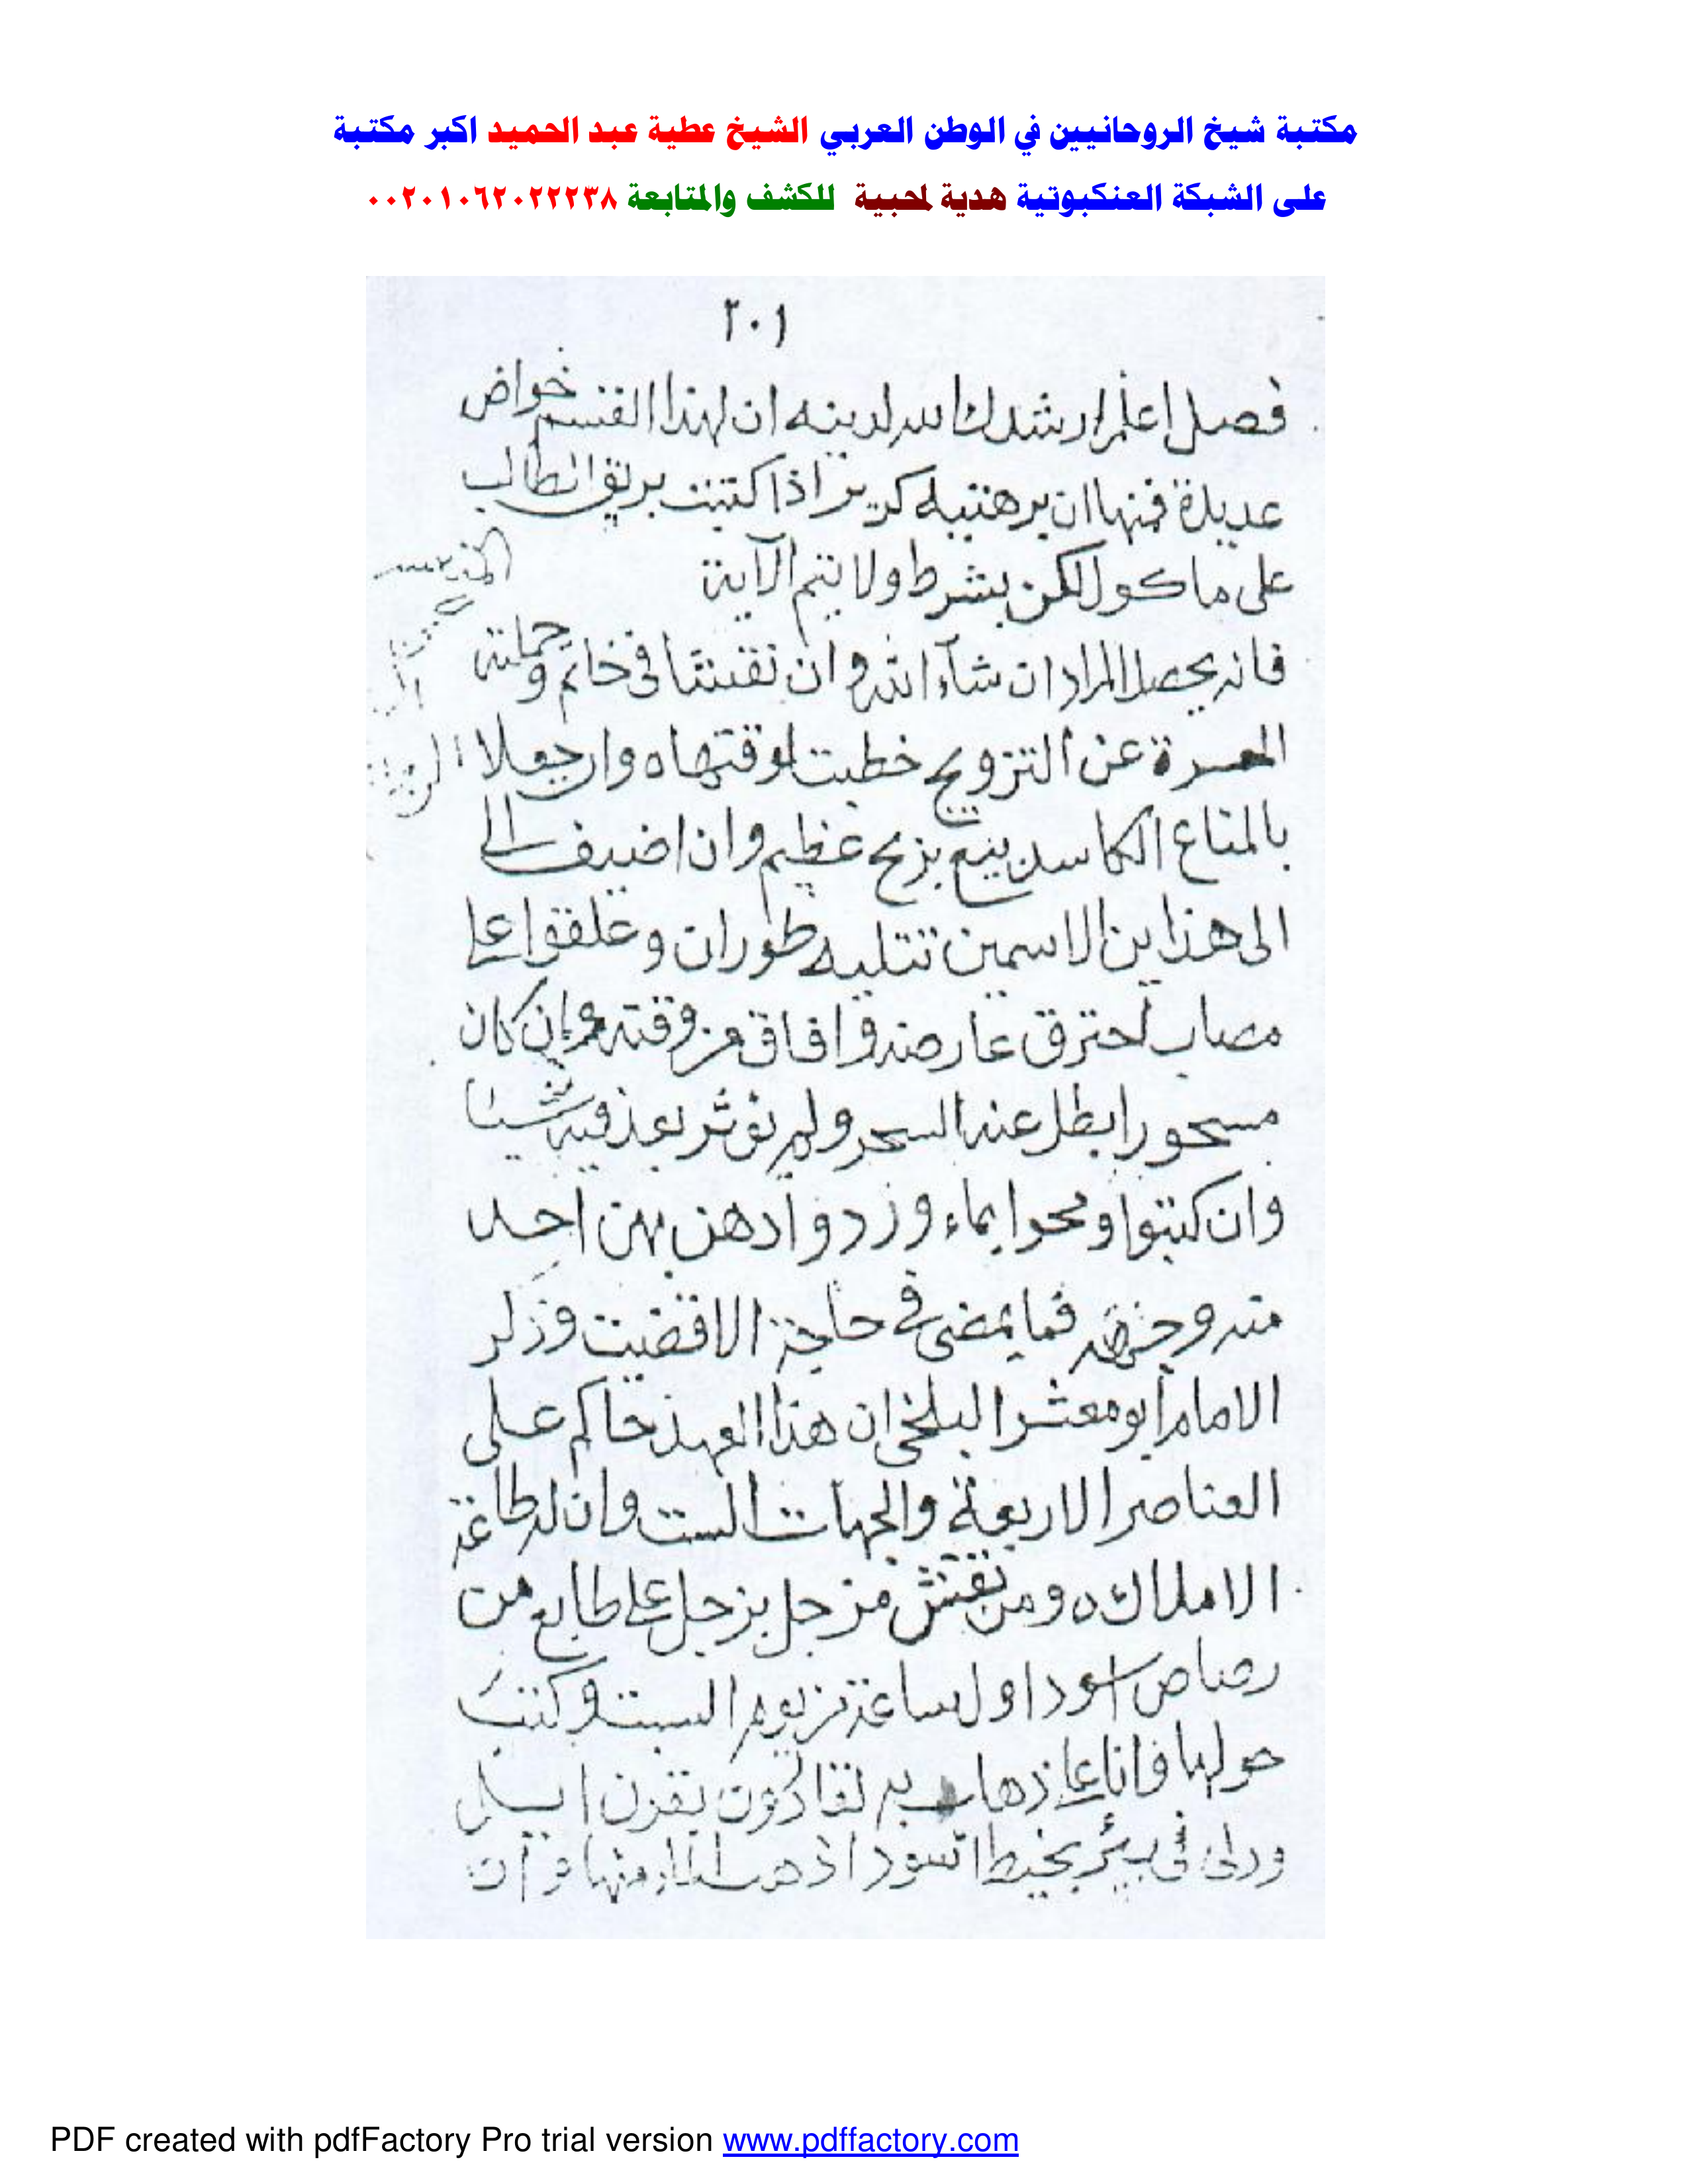 مكتبة شيخ الروحانيين في الوطن العربي الشيخ عطية عبد الحميد اكبر مكتبة
على الشبكة العنكبوتية هدية لمحبية للكشف والمتابعة ٠٠٢٠١٠٦٢٠٢٢٢٣٨
٢٠١
فصل اعلم ارشدك الله لدينه ان لهذا القسم خواص
عديدة فمنها ان برهتيه كرير اذا كتبت بريق الطالب
على ماكول لكن بشرط ولا يتم الآية
فانه يحصل المراد ان شآء الله وان نقشتا في خاتم وحملته
المعسرة عن التزويج خطبت لوقتها ه وان جعلا
بالمتاع الكاسد بيع بربح عظيم وان اضيف الى
الى هذاين الاسمين تتليه طوران وعلقوا على
مصاب احترق عارضه وافاق من وقته وان كان
مسحورا بطل عنه السحر ولم يؤثر بعد فيه شيئا
وان كتبوا ومحوا بماء ورد وادهن بهن احد
منه وجهه فما يمضى في حاجة الا قضيت وذكر
الامام أبو معشر البلخي ان هذا العهد حاكم على
العناصر الاربعة والجهات الست وان له طاعة
الاملاك ه ومن نقش مزجل بزجل على طابع من
رصاص اسود اول ساعة من يوم السبت وكتب
حولها وانا على ذهاب به لقادرون بقرن ايل
ودلى في بئر بخيط اسود اذهب الماء منها وان
PDF created with pdfFactory Pro trial version www.pdffactory.com